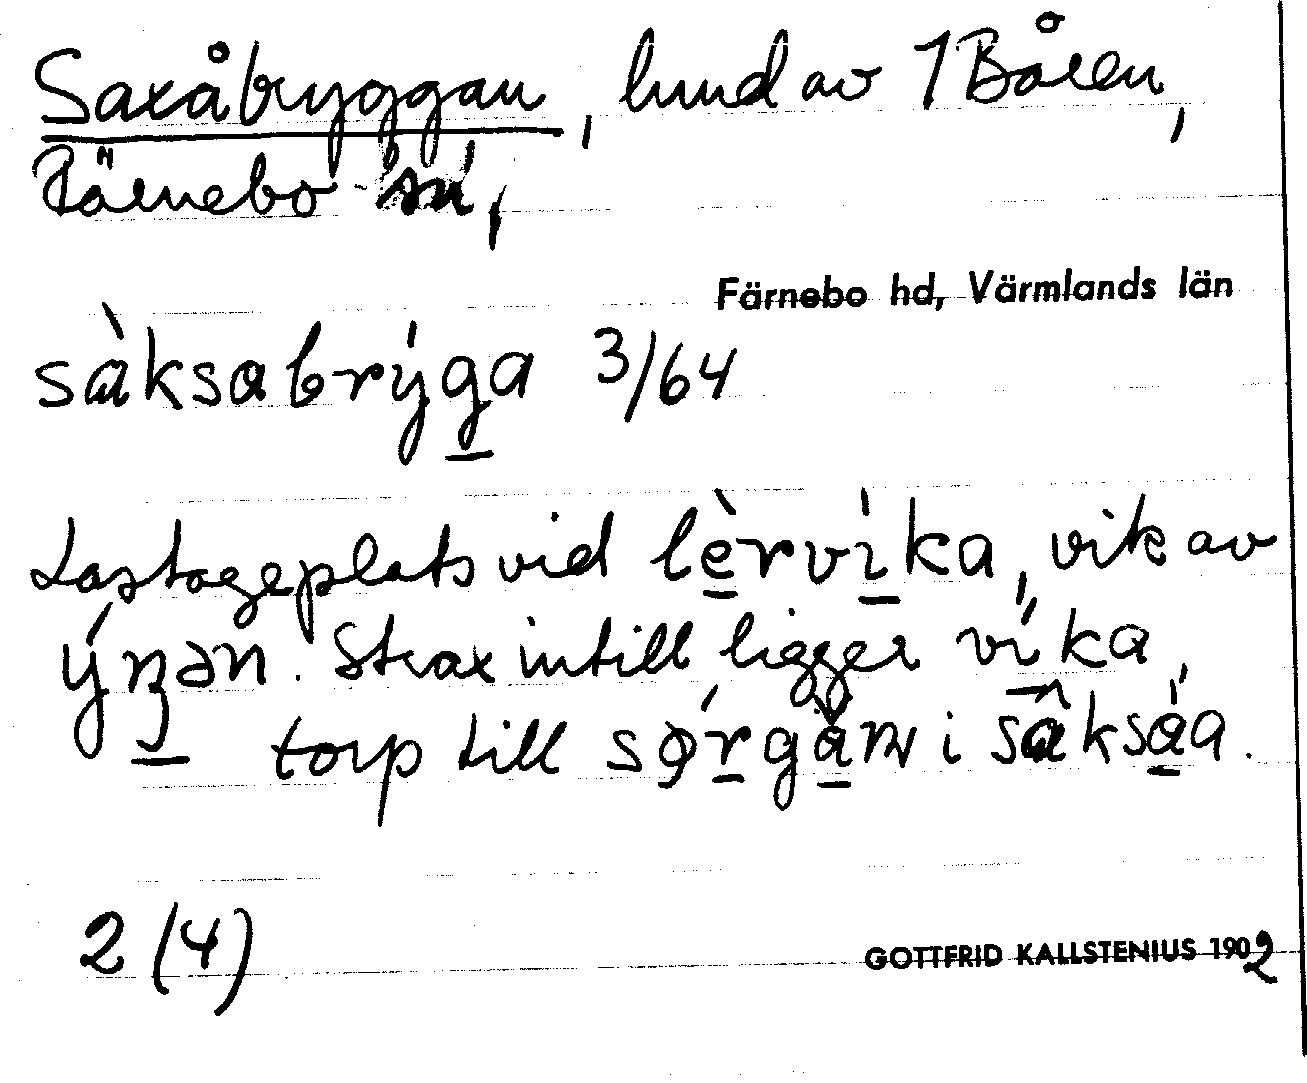 Saxåbryggan, hmd av 1 Båsen,
Färnebo sn,
Färnebo hd, Värmlands län
sàksabrýga 3/64
Lastageplats vid lèrvìka, vik av
ýŋən. Strax intill ligger víka,
torp till sǫ́rgån i sâksåa.
2 (4)
GOTTFRID KALLSTENIUS 1902